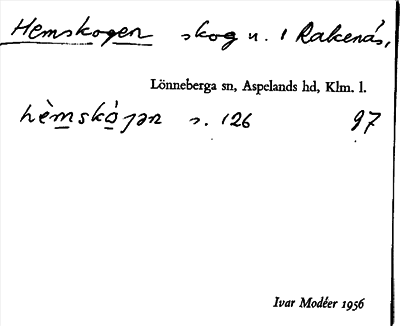 Hemskogen skog n. 1 Rakenäs,
Lönneberga sn, Aspelands hd, Klm. l.
hèmskó̱gən s. 126 97
Ivar Modéer 1956